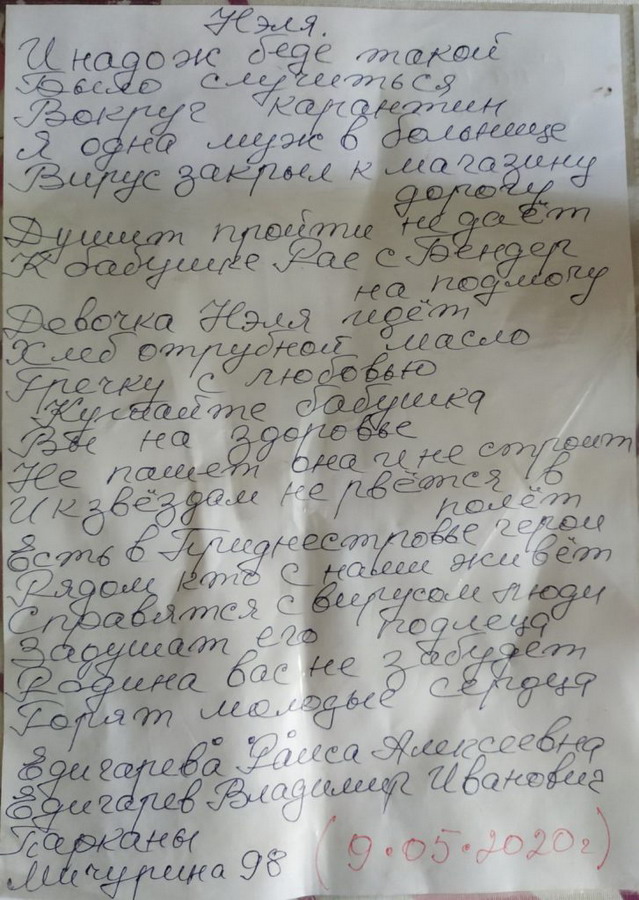 Нэля.
И надо ж беде такой
Было случиться
Вокруг карантин
Я одна муж в больнице
Вирус закрыл к магазину
дорогу
Душит пройти не даёт
К бабушке Рае с Бендер
на подмогу
Девочка Нэля идёт
Хлеб отрубной масло
Гречку с любовью
Кушайте бабушка
Вы на здоровье
Не пашет она и не строит
И к звёздам не рвётся в
полёт
Есть в Приднестровье герои
Рядом кто с нами живёт
Справятся с вирусом люди
Задушат его подлеца
Родина вас не забудет
Горят молодые сердца
Едигарева Раиса Алексеевна
Едигарев Владимир Иванович
Парканы
Мичурина 98 (9.05.2020г)